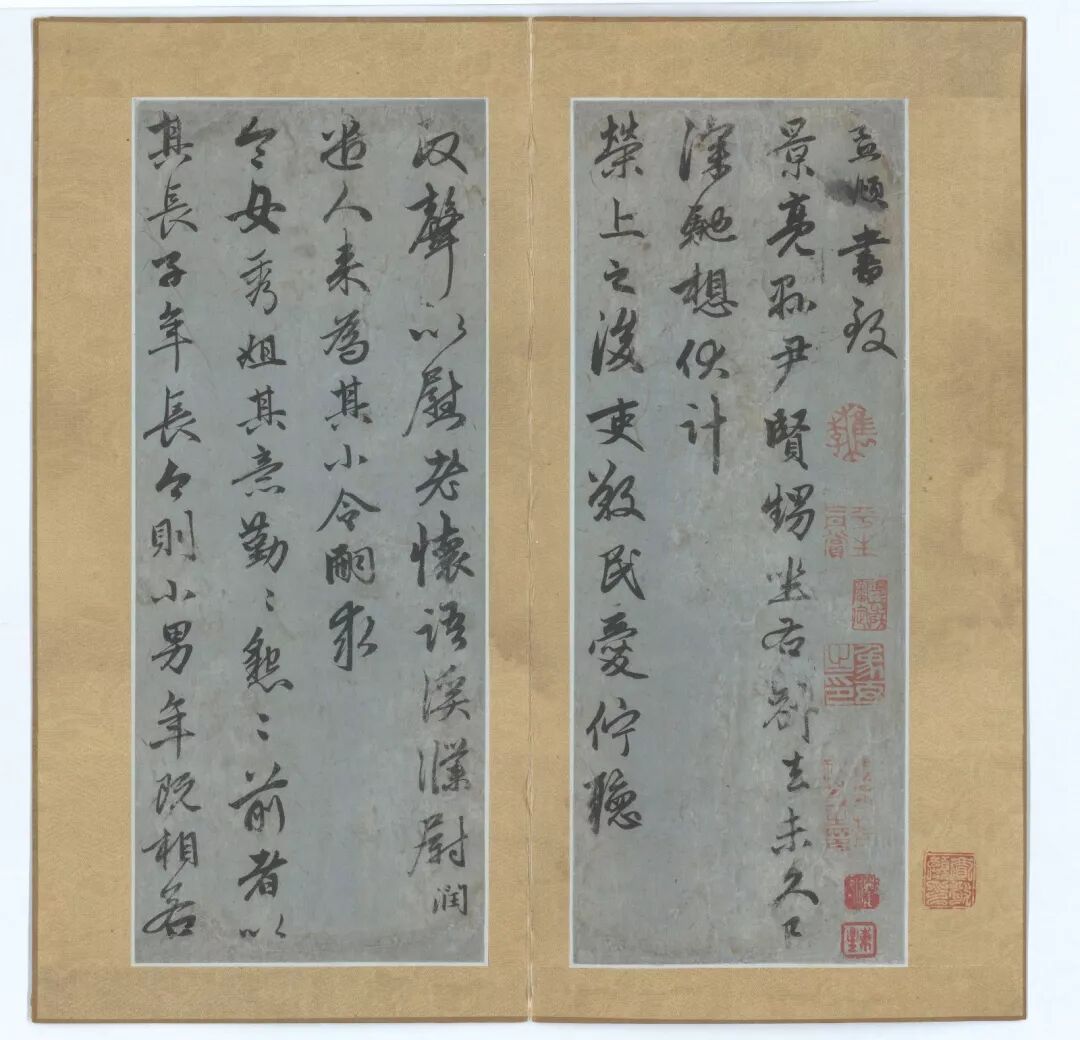 孟頫書致
景亮縣尹賢甥坐右別去未久已
深馳想伏計
榮上之後吏散民愛佇聽
政聲以慰老懷語溪濮尉潤
遣人來為其小令嗣求
令女秀姐其意勤〻懇〻前者以
其長子年長今則小男年既相若